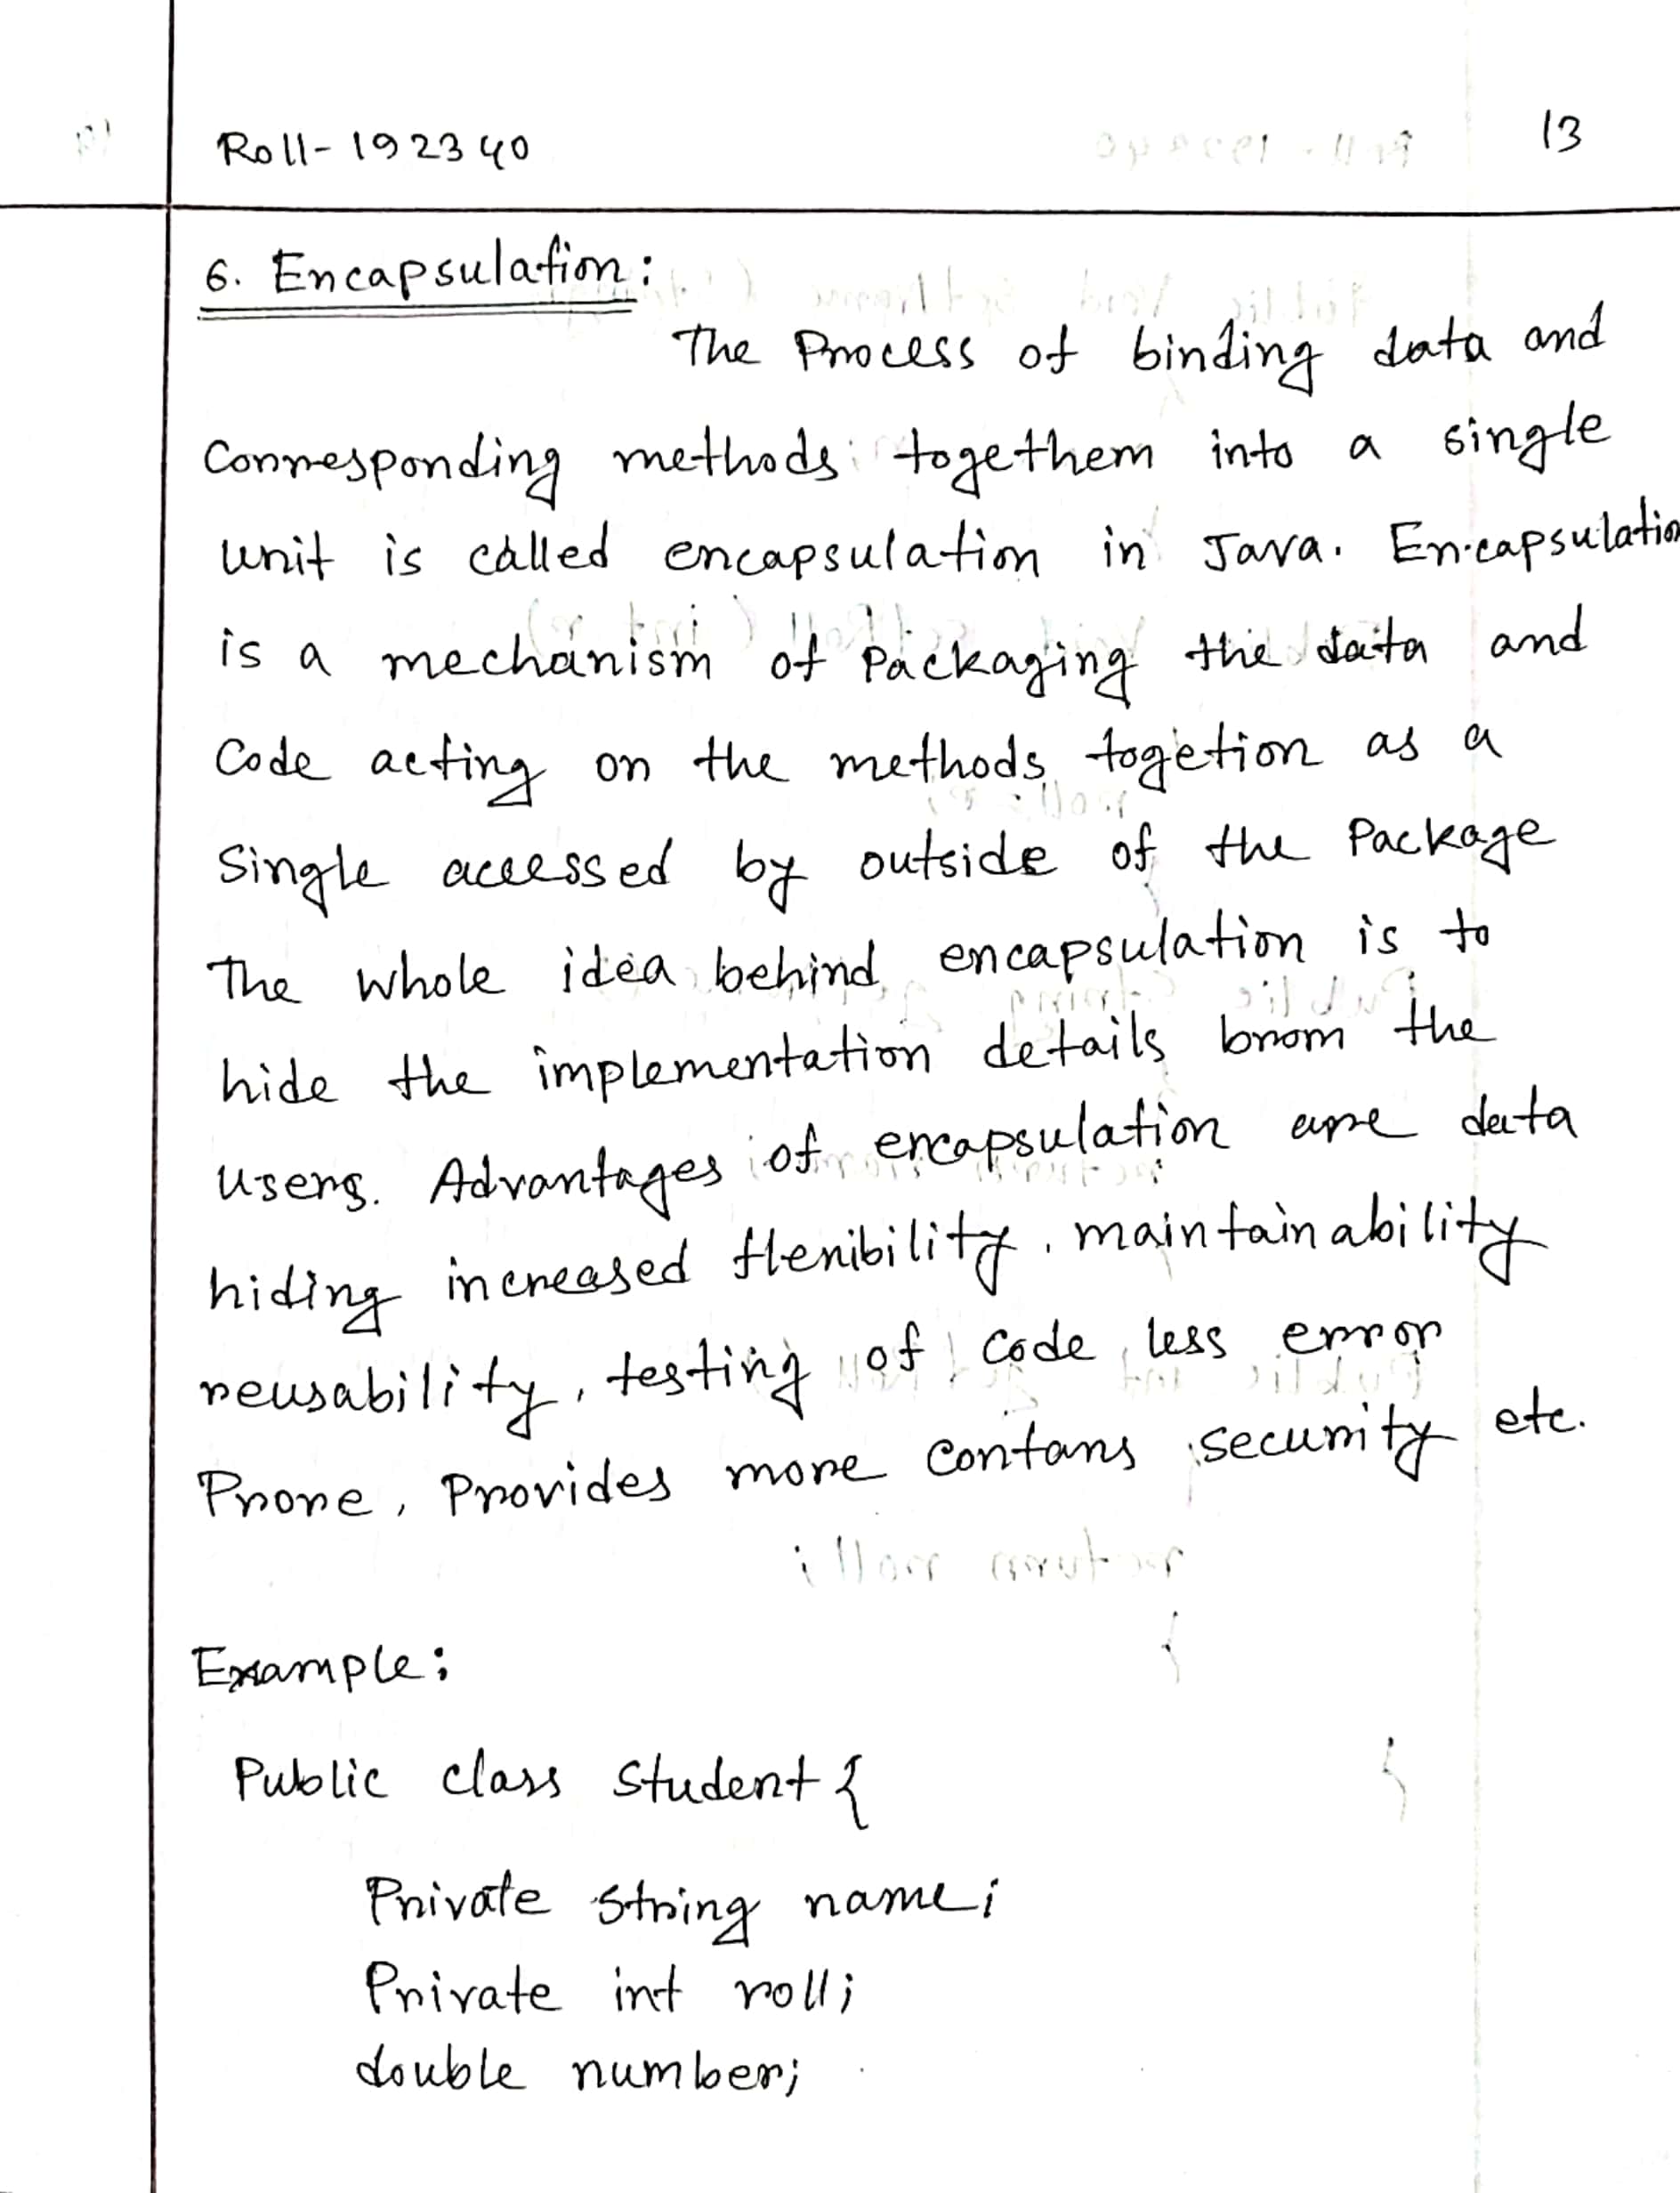 Roll-192340
13
6. Encapsulation:
The Process of binding data and
Corresponding methods togethem into a single
unit is called encapsulation in Java. Encapsulation
is a mechanism of Packaging the data and
Code acting on the methods togetion as a
Single accessed by outside of the Package
The whole idea behind encapsulation is to
hide the implementation details brom the
users. Advantages of encapsulation are data
hiding increased flexibility, maintainability
reusability, testing of code, less error
Prone, Provides more contans security etc.
Example:
Public class student {
Private String name;
Private int roll;
double number;